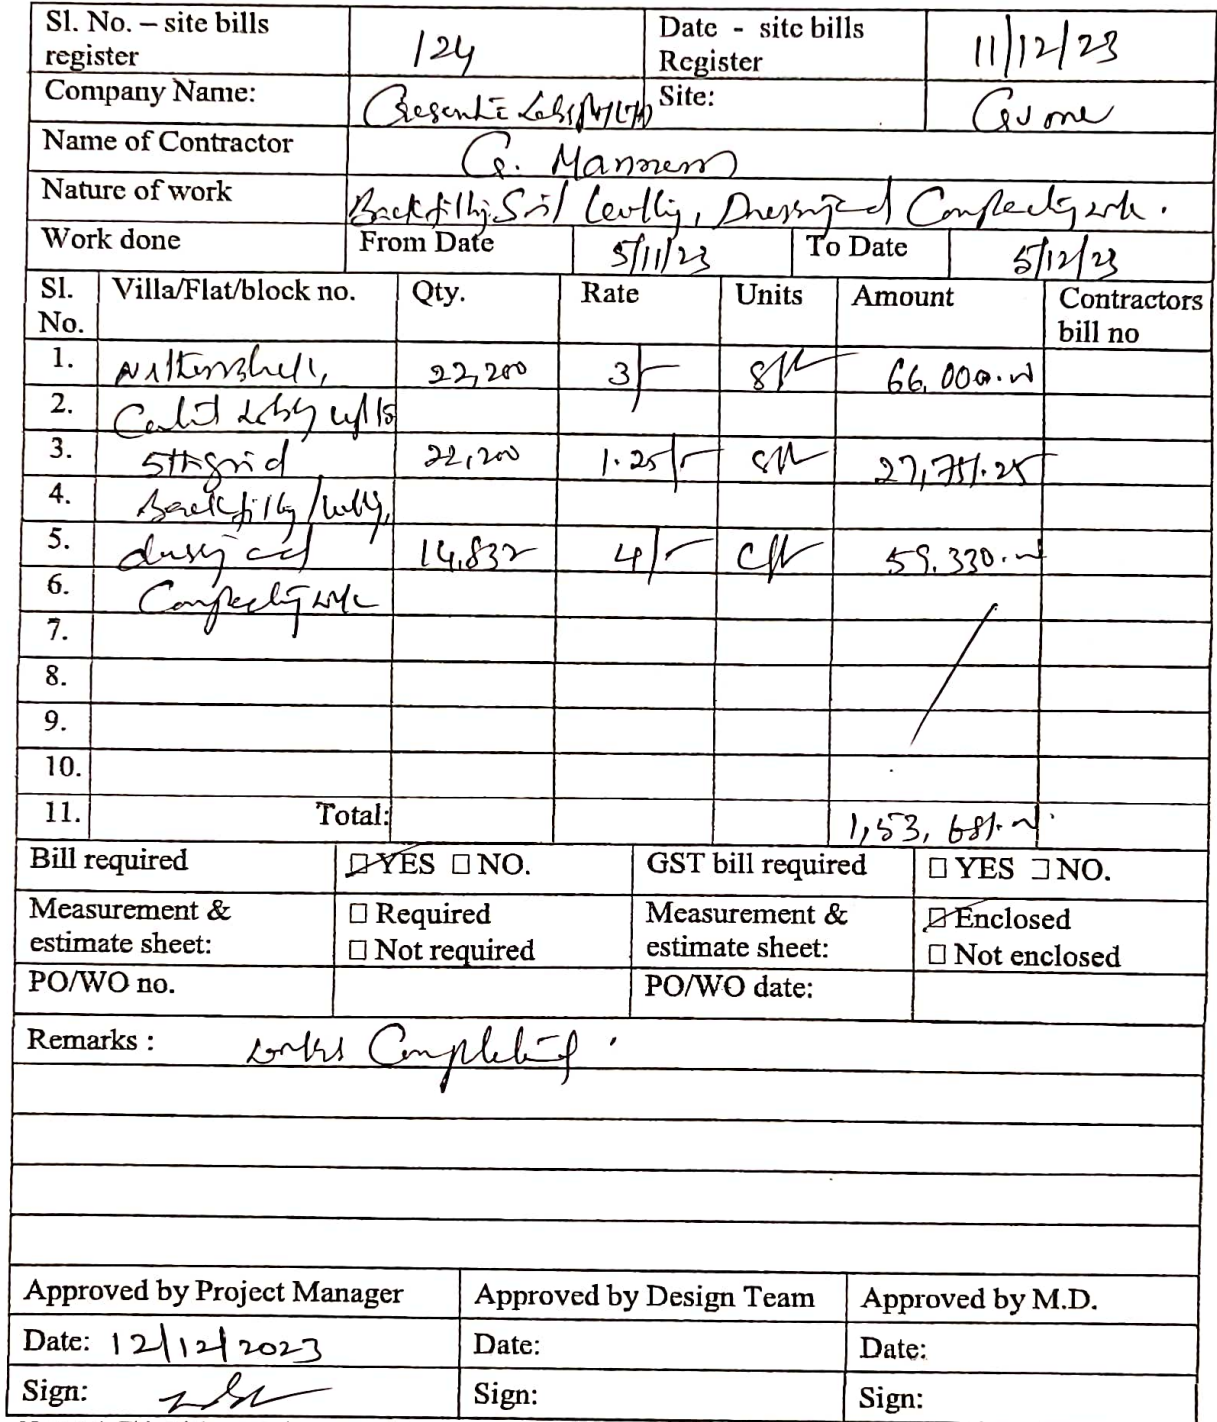 Sl. No. – site bills register 124 Date - site bills Register 11/12/23
Company Name: Site: GV one
Name of Contractor G.
Nature of work Backfilling Soil levelling, Dressing and Compacting work.
Work done From Date 5/11/23 To Date 5/12/23
Sl. No. Villa/Flat/block no. Qty. Rate Units Amount Contractors bill no
1. 22,200 3/- sft 66,000.00
2. upto
3. 5th grid 22,200 1.25/- sft 27,751.25
4. Backfilling/levelling,
5. dressing and 14,832 4/- cft 59,330.00
6. Compacting work
7.
8.
9.
10.
11. Total: 1,53,681.00
Bill required ☐ YES ☐ NO. GST bill required ☐ YES ☐ NO.
Measurement & estimate sheet: ☐ Required ☐ Not required Measurement & estimate sheet: ☐ Enclosed ☐ Not enclosed
PO/WO no. PO/WO date:
Remarks : works Completed.
Approved by Project Manager Approved by Design Team Approved by M.D.
Date: 12/12/2023 Date: Date:
Sign: Sign: Sign: